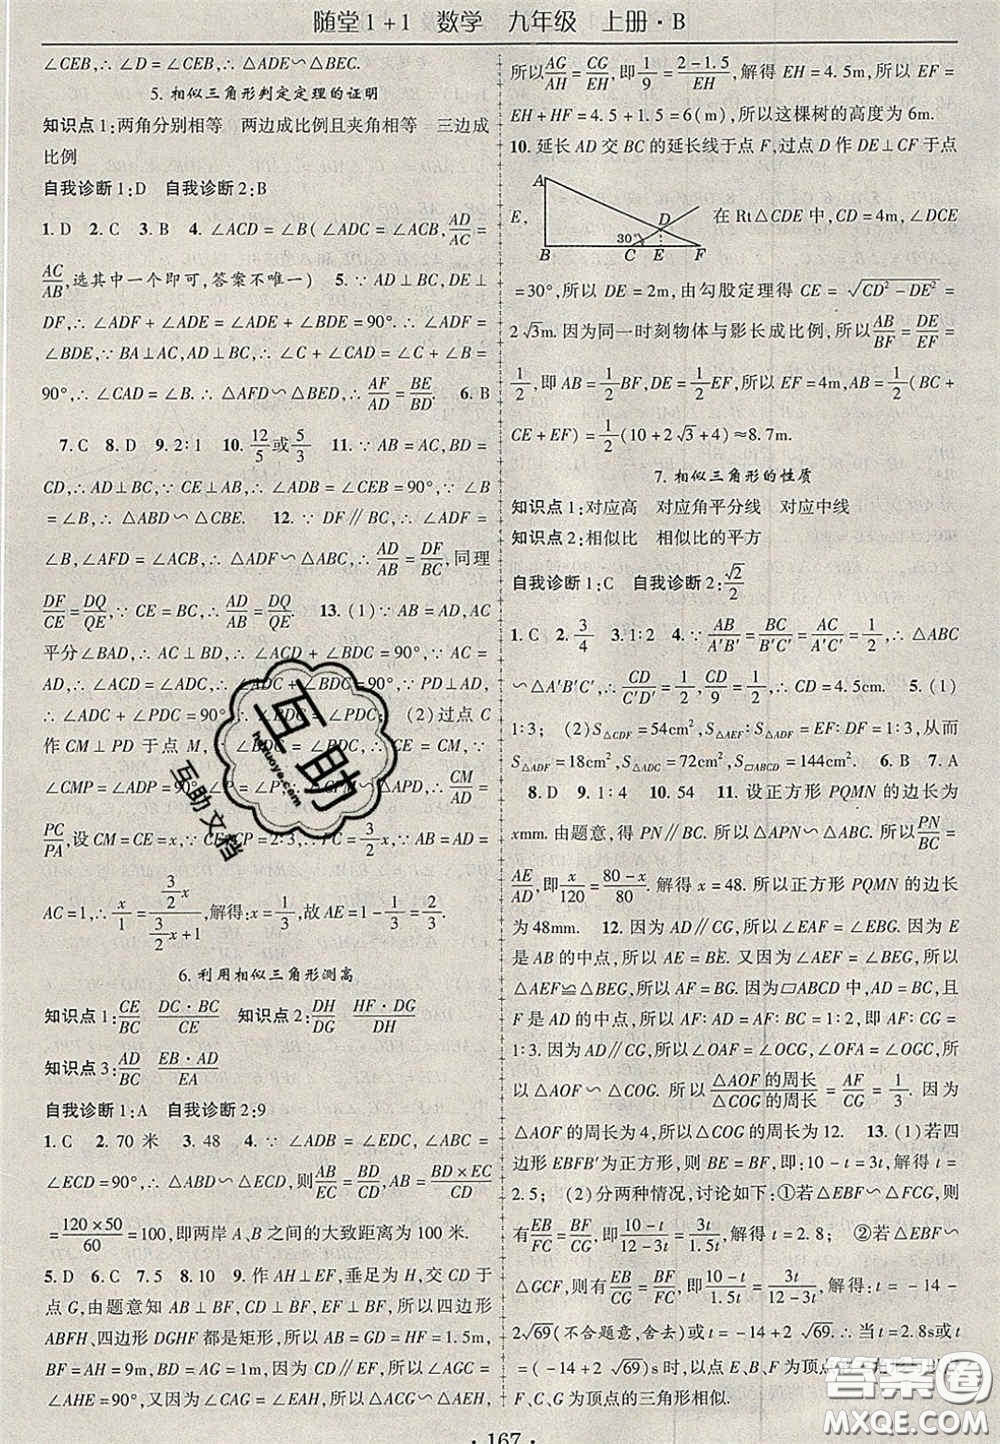 随堂1+1 数学 九年级 上册·B
∠CEB,∴∠D=∠CEB,∴△ADE∽△BEC.
5.相似三角形判定定理的证明
知识点1:两角分别相等 两边成比例且夹角相等 三边成
比例
自我诊断1:D 自我诊断2:B
1.D 2.C 3.B 4.∠ACD=∠B(∠ADC=∠ACB,AD/AC=
AC/AB,选其中一个即可,答案不唯一) 5.∵AD⊥BD,DE⊥
DF,∴∠ADF+∠ADE=∠BDE+∠ADE=90°.∴∠ADF=
∠BDE,∵BA⊥AC,AD⊥BC,∴∠C+∠CAD=∠C+∠B=
90°,∴∠CAD=∠B.∴△AFD∽△BED.∴AF/AD=BE/BD. 6.B
7.C 8.D 9.2:1 10.12/5或5/3 11.∵AB=AC,BD=
CD,∴AD⊥BC,∵CE⊥AB,∴∠ADB=∠CEB=90°,∵∠B=
∠B,∴△ABD∽△CBE. 12.∵DF∥BC,∴∠ADF=
∠B,∠AFD=∠ACB,∴△ADF∽△ABC,∴AD/AB=DF/BC,同理
DF/CE=DQ/QE,∵CE=BC,∴AD/AB=DQ/QE. 13.(1)∵AB=AD,AC
平分∠BAD,∴AC⊥BD,∴∠ACD+∠BDC=90°,∵AC=
AD,∴∠ACD=∠ADC,∴∠ADC+∠BDC=90°,∵PD⊥AD,
∴∠ADC+∠PDC=90°,∴∠BDC=∠PDC; (2)过点C
作CM⊥PD于点M,
∠CMP=∠ADP=90°,
∽△APD,∴CM/AD=
PC/PA,设CM=CE=x,∵CE:CP=2:3,∴PC=3/2x,∵AB=AD=
AC=1,∴x/1=(3/2x)/(3/2x+1),解得:x=1/3,故AE=1-1/3=2/3.
6.利用相似三角形测高
知识点1:CE/BC DC·BC/CE 知识点2:DH/DG HF·DG/DH
知识点3:AD/BC EB·AD/EA
自我诊断1:A 自我诊断2:9
1.C 2.70米 3.48 4.∵∠ADB=∠EDC,∠ABC=
∠ECD=90°,∴△ABD∽△ECD,则AB/EC=BD/CD,AB=BD×EC/CD
=120×50/60=100,即两岸A、B之间的大致距离为100米.
5.D 6.C 7.5 8.10 9.作AH⊥EF,垂足为H,交CD于
点G,由题意知AB⊥BF,CD⊥BF,EF⊥BF,所以四边形
ABFH、四边形DGHF都是矩形,所以AB=GD=HF=1.5m,
BF=AH=9m,BD=AG=1m,因为CD∥EF,所以∠AGC=
∠AHE=90°.又因为∠CAG=∠EAH,所以△ACG∽△AEH,
所以AG/AH=CG/EH,即1/9=(2-1.5)/EH,解得EH=4.5m,所以EF=
EH+HF=4.5+1.5=6(m),所以这棵树的高度为6m.
10.延长AD交BC的延长线于点F,过点D作DE⊥CF于点
E,
A
D
30°
B C E F
在Rt△CDE中,CD=4m,∠DCE
=30°,所以DE=2m,由勾股定理得CE=√(CD²-DE²)=
2√3m.因为同一时刻物体与影长成比例,所以AB/BF=DE/EF=
1/2,即AB=1/2BF,DE=1/2EF,所以EF=4m,AB=1/2(BC+
CE+EF)=1/2(10+2√3+4)≈8.7m.
7.相似三角形的性质
知识点1:对应高 对应角平分线 对应中线
知识点2:相似比 相似比的平方
自我诊断1:C 自我诊断2:√2/2
1.C 2.3/4 3.1:2 4.∵AB/A′B′=BC/B′C′=AC/A′C′=1/2,∴△ABC
∽△A′B′C′,∴CD/C′D′=1/2,CD/9=1/2,∴CD=4.5cm. 5.(1)
1:3; (2)S△CDF=54cm²,S△AEF:S△ADF=EF:DF=1:3,从而
S△ADF=18cm²,S△ADC=72cm²,S▱ABCD=144cm². 6.B 7.A
8.D 9.1:4 10.54 11.设正方形PQMN的边长为
xmm.由题意,得PN∥BC.所以△APN∽△ABC.所以PN/BC=
AE/AD,即x/120=(80-x)/80.解得x=48.所以正方形PQMN的边长
为48mm. 12.因为AD∥CG,所以∠EAF=∠EBG.因为E
是AB的中点,所以AE=BE.又因为∠AEF=∠BEG,所以
△AEF≌△BEG,所以AF=BG.因为▱ABCD中,AD=BC,且
F是AD的中点,所以AF:AD=AF:BC=1:2,即AF:CG=
1:3.因为AD∥CG,所以∠OAF=∠OCG,∠OFA=∠OGC,所
以△AOF∽△COG.所以△AOF的周长/△COG的周长=AF/CG=1/3.因为
△AOF的周长为4,所以△COG的周长为12. 13.(1)若四
边形EBFB′为正方形,则BE=BF,即:10-t=3t,解得t=
2.5; (2)分两种情况,讨论如下:①若△EBF∽△FCG,则
有EB/FC=BF/CG,即(10-t)/(12-3t)=3t/1.5t,解得:t=2.8; ②若△EBF∽
△GCF,则有EB/CG=BF/FC,即(10-t)/1.5t=3t/(12-3t),解得:t=-14-
2√69(不合题意,舍去)或t=-14+2√69.∴当t=2.8s或t
=(-14+2√69)s时,以点E、B、F为顶点
F、C、G为顶点的三角形相似.
·167·
互助
hezuoye.com
互助文档
答案圈
MXQE.COM